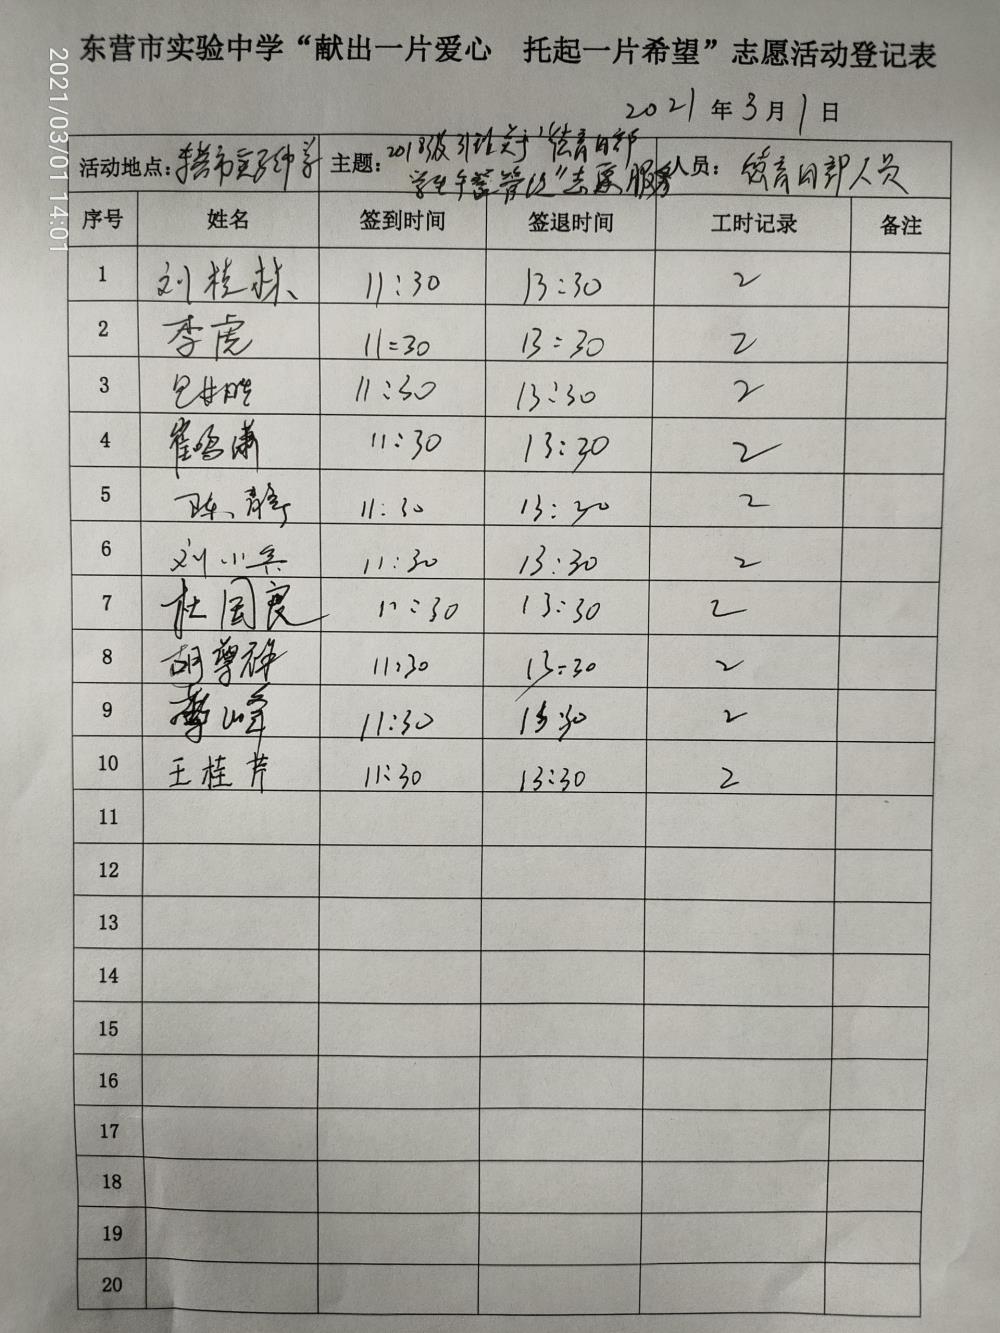 东营市实验中学“献出一片爱心 托起一片希望”志愿活动登记表
2021年3月1日
活动地点：东营市实验中学 主题：2018级31班关于“德育日部 人员：德育日部人员
学生午餐管理”志愿服务
序号 姓名 签到时间 签退时间 工时记录 备注
1 刘桂林 11:30 13:30 2
2 李虎 11:30 13:30 2
3 11:30 13:30 2
4 崔鸣潇 11:30 13:30 2
5 陈静 11:30 13:30 2
6 刘小兵 11:30 13:30 2
7 杜国良 11:30 13:30 2
8 胡尊祥 11:30 13:30 2
9 11:30 13:30 2
10 王桂芹 11:30 13:30 2
11
12
13
14
15
16
17
18
19
20
2021/03/01 14:01